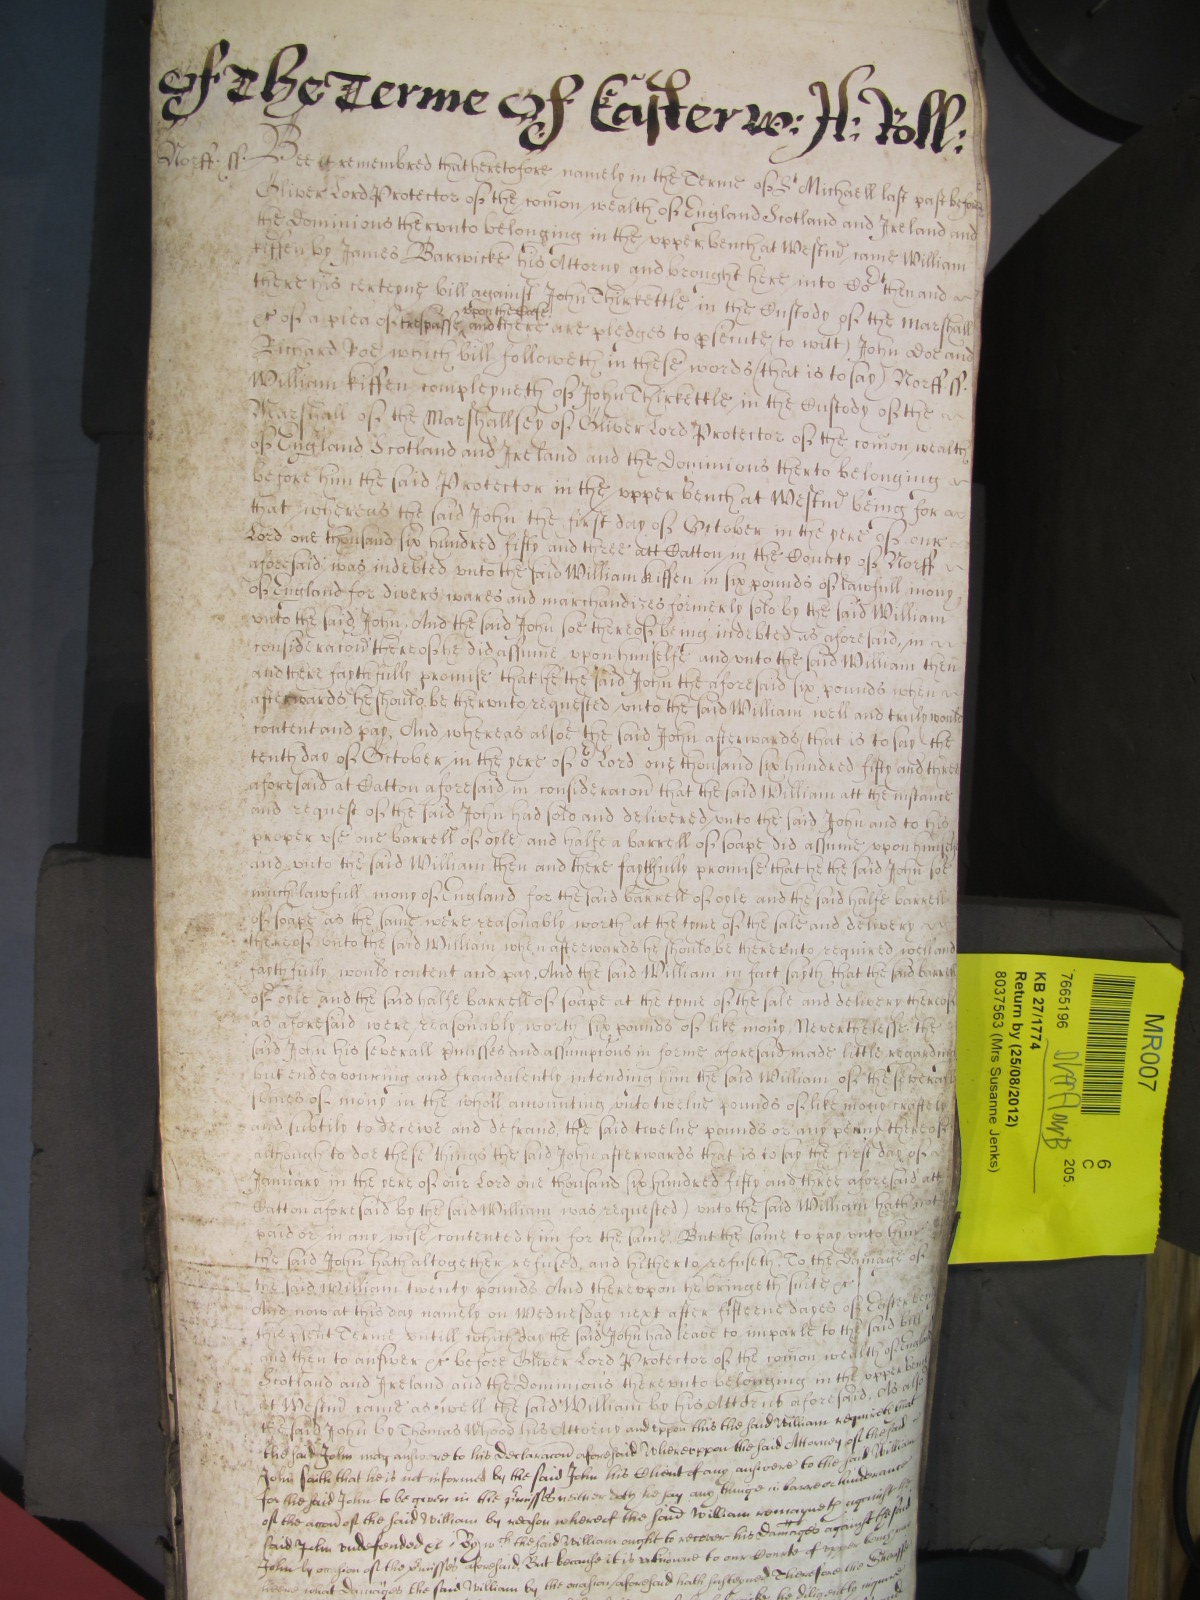 of The Terme of Easter w: H: Roll:
Norff. ss. Bee it remembred that heretofore namely in the Terme of St Michaell last past before
Oliver Lord Protector of the com̄on wealth of England Scotland and Ireland and
the Dominions therunto belonging in the upper bench at Westm̄ came William
Kiffen by James Barwicke his Attorny and brought here into Co then and
there his certeyne bill against John Thirkettle in the Custody of the Marshall
&c of a plea of trespasse upon the Case and there are pledges to p̱secute (to witt) John Doe and
Richard Roe which bill followeth in these words (that is to say) Norff. ss.
William Kiffen compleyneth of John Thirkettle in the Custody of the
Marshall of the Marshallsey of Oliver Lord Protector of the com̄on wealth
of England Scotland and Ireland and the Dominions therto belonging
before him the said Protector in the upper bench at Westm̄ being for
that whereas the said John the first day of October in the yere of our
Lord one thousand six hundred fifty and three att Catton in the County of Norff
aforesaid was indebted unto the said William Kiffen in six pounds of lawfull mony
of England for divers wares and marchandizes formerly sold by the said William
unto the said John. And the said John soe thereof being indebted as aforesaid, in
consideracōn thereof he did assume upon himselfe and unto the said William then
and there faythfully promise that he the said John the aforesaid six pounds when
afterwards he should be therunto requested unto the said William well and truly would
content and pay. And whereas alsoe the said John afterwards that is to say the
tenth day of October in the yere of or Lord one thousand six hundred fifty and three
aforesaid at Catton aforesaid in consideracōn that the said William att the instance
and request of the said John had sold and delivered unto the said John and to his
proper use one barrell of oyle and halfe a barrell of soape did assume upon himselfe
and unto the said William then and there faythfully promise that he the said John soe
much lawfull mony of England for the said barrell of oyle and the said halfe barrell
of soape as the same were reasonably worth at the tyme of the sale and delivery
thereof unto the said William when afterwards he should be thereunto required well and
faythfully would content and pay. And the said William in fact sayth that the said barrell
of oyle and the said halfe barrell of soape at the tyme of the sale and delivery thereof
as aforesaid were reasonably worth six pounds of like mony. Neverthelesse the
said John his severall p̱misses and assumptions in forme aforesaid made little regarding
but endeavouring and fraudulently intending him the said William of the severall
sumes of mony in the whole amounting unto twelve pounds of like mony craftely
and subtily to deceive and defraud, the said twelve pounds or any penny thereof
although to doe these things the said John afterwards that is to say the first day of
January in the yere of our Lord one thousand six hundred fifty and three aforesaid att
Catton aforesaid by the said William was requested) unto the said William hath not
paid or in any wise contented him for the same. But the same to pay unto him
the said John hath altogether refused, and hitherto refuseth. To the Damage of
the said William twenty pounds. And thereupon he bringeth suite &c
And now at this day namely on Wednesday next after fifteene dayes of Easter
this p̱sent Terme untill which day the said John had leave to imparle to the said bill
and then to answer &c before Oliver Lord Protector of the com̄on wealth of England
Scotland and Ireland and the Dominions therunto belonging in the upper bench
at Westm̄ came as well the said William by his Attorny aforesaid. As also
the said John by Thomas Whood his Attorny and uppon this the said William requireth that
the said John may answere to his Declaracōn aforesaid Whereuppon the said Attorney of the said
John saith that he is not informed by the said John his Client of any answere to the said William
for the said John to be given in the p̱misses neither doth he say any thinge in barre or hinderance
of the accōn of the said William by reason whereof the said William remayneth against the
said John undefended &c By wch the said William ought to recover his Damages against the said
John by occasion of the p̱misses aforesaid. But because it is unknowne to our Courte of upper bench
what damages the said William by the occasion aforesaid hath susteyned Therefore the Sheriffe
he diligently inquire
MR007
6
C
7665196
205.
KB 27/1774
Return by (25/08/2012)
8037563 (Mrs Susanne Jenks)